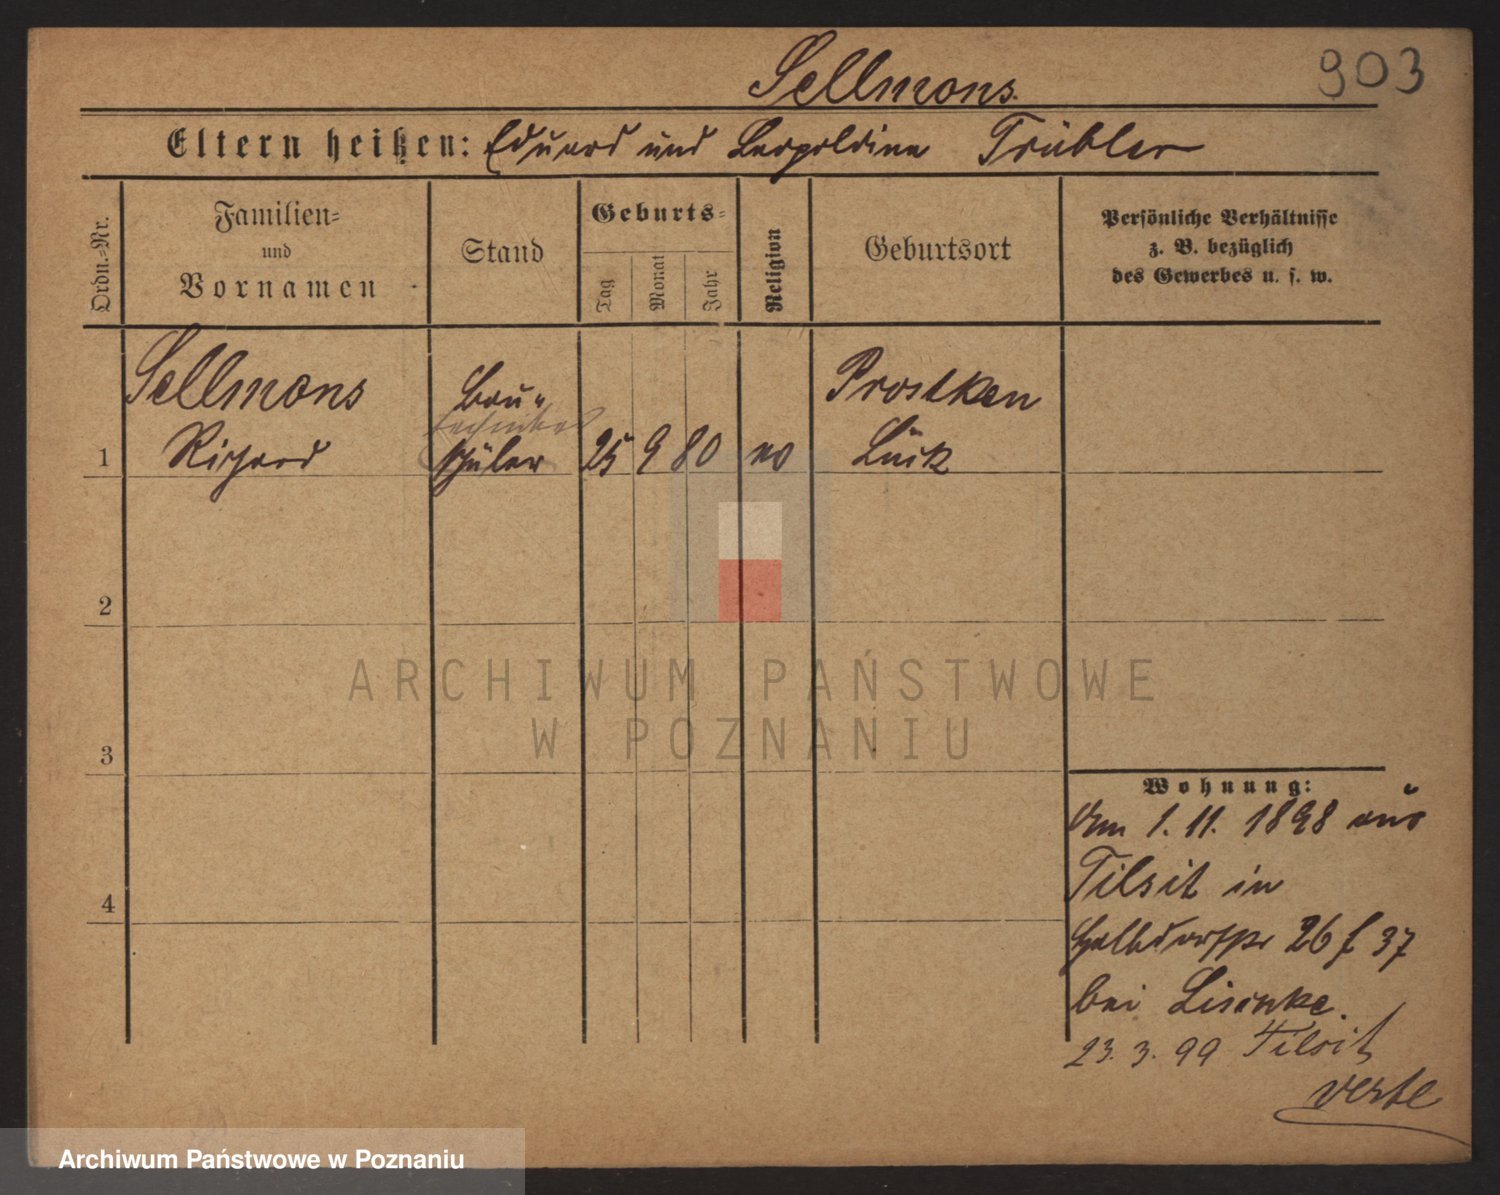 Sellmons. 903
Eltern heißen: Eduard und Leopoldine Trübler
Ordn.=Nr.
Familien=
und
Vornamen
Stand
Geburts=
Tag
Monat
Jahr
Religion
Geburtsort
Persönliche Verhältnisse
z. B. bezüglich
des Gewerbes u. s. w.
Sellmons Bau= Prostken
techniker
1 Richard schüler 25 9 80 Lück
2
3
4
Wohnung:
Am 1. 11. 1898 aus
Tilsit in
26 37
bei
23. 3. 99 Tilsit
verte
ARCHIWUM PAŃSTWOWE
W POZNANIU
Archiwum Państwowe w Poznaniu